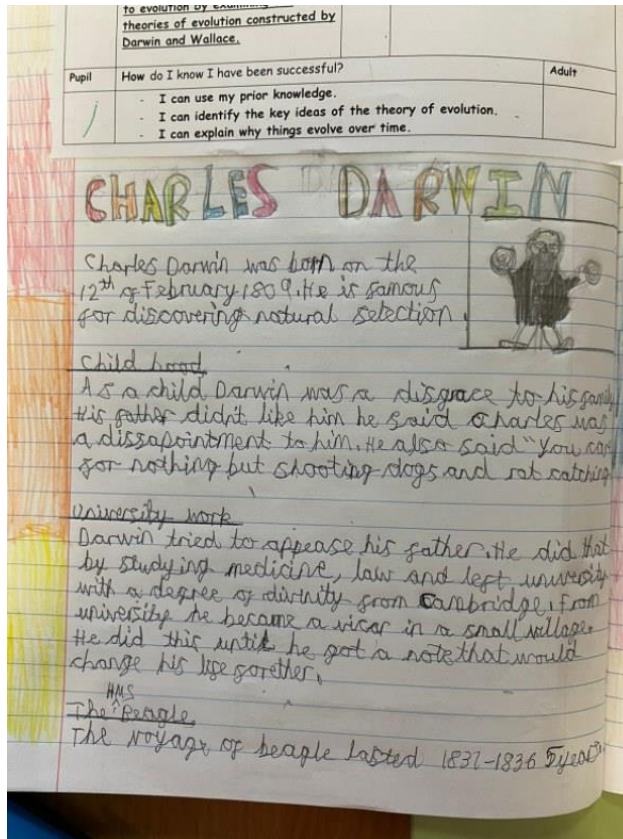 to evolution by examining
theories of evolution constructed by
Darwin and Wallace.
Pupil
How do I know I have been successful?
Adult
- I can use my prior knowledge.
- I can identify the key ideas of the theory of evolution.
- I can explain why things evolve over time.
CHARLES DARWIN
Charles Darwin was born on the
12th of February 1809. He is famous
for discovering natural selection.
Child hood
As a child Darwin was a disgrace to his family
His father didn't like him he said Charles was
a dissapointment to him. He also said "You care
for nothing but shooting dogs and rat catching
University work
Darwin tried to appease his father. He did that
by studying medicine, law and left university
with a degree of divinity from Cambridge. From
university he became a vicar in a small village.
He did this until he got a note that would
change his life forether.
The HMS Beagle
The voyage of beagle lasted 1831-1836 5 years